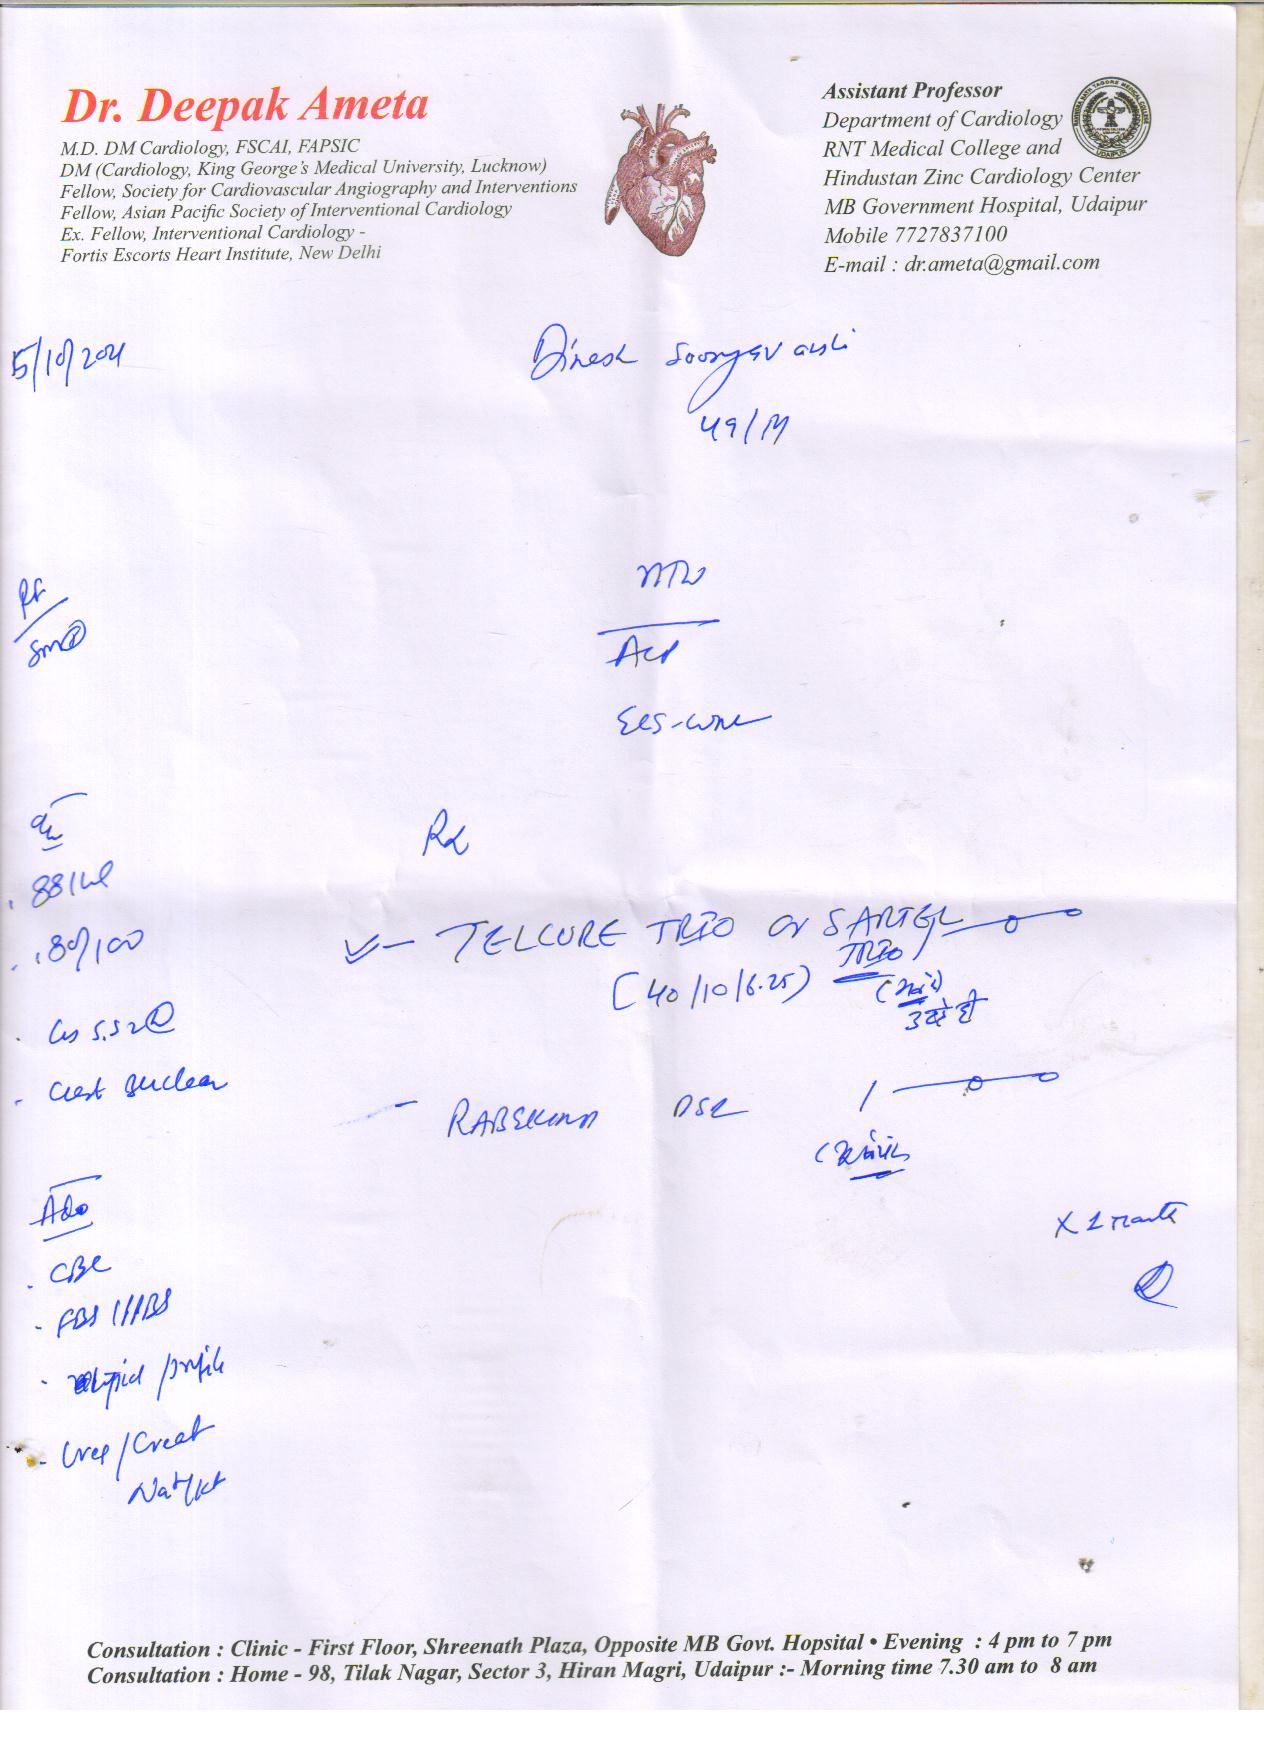 Dr. Deepak Ameta
M.D. DM Cardiology, FSCAI, FAPSIC
DM (Cardiology, King George's Medical University, Lucknow)
Fellow, Society for Cardiovascular Angiography and Interventions
Fellow, Asian Pacific Society of Interventional Cardiology
Ex. Fellow, Interventional Cardiology -
Fortis Escorts Heart Institute, New Delhi
Assistant Professor
Department of Cardiology
RNT Medical College and
Hindustan Zinc Cardiology Center
MB Government Hospital, Udaipur
Mobile 7727837100
E-mail : dr.ameta@gmail.com
RABINDRA NATH TAGORE MEDICAL COLLEGE
UDAIPUR
5/10/2021
Dinesh Sooryavanshi
49/M
Rx
180/100
TELCURE TRIO or SARTEL
TRIO
[40/10/6.25)
Chest B/L clear
DSR
x 1 month
Adv
- CBC
- FBS / PPBS
- Lipid / profile
- Urea / Creat
Na+/K+
Consultation : Clinic - First Floor, Shreenath Plaza, Opposite MB Govt. Hopsital • Evening : 4 pm to 7 pm
Consultation : Home - 98, Tilak Nagar, Sector 3, Hiran Magri, Udaipur :- Morning time 7.30 am to 8 am